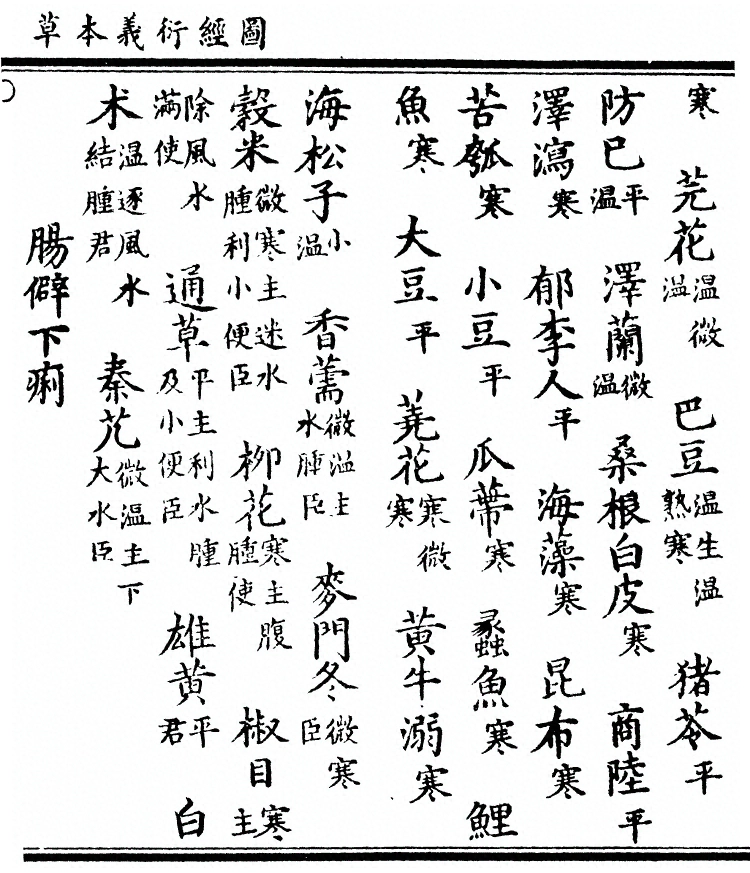 圖經衍義本草
寒　芫花温微温　巴豆温生温熟寒　猪苓平
防巳平温　澤蘭微温　桑根白皮寒　商陸平
澤瀉寒　郁李人平　海藻寒　昆布寒
苦瓠寒　小豆平　瓜蔕寒　蠡魚寒　鯉
魚寒　大豆平　蕘花寒微寒　黃牛溺寒
海松子小温　香薷微温主水腫臣　麥門冬微寒臣
穀米微寒主迷水腫利小便臣　柳花寒主腹腫使　椒目寒主
除風水滿使　通草平主利水腫及小便臣　雄黃平君　白
术温逐風水結腫君　秦艽微温主下大水臣
腸僻下痢